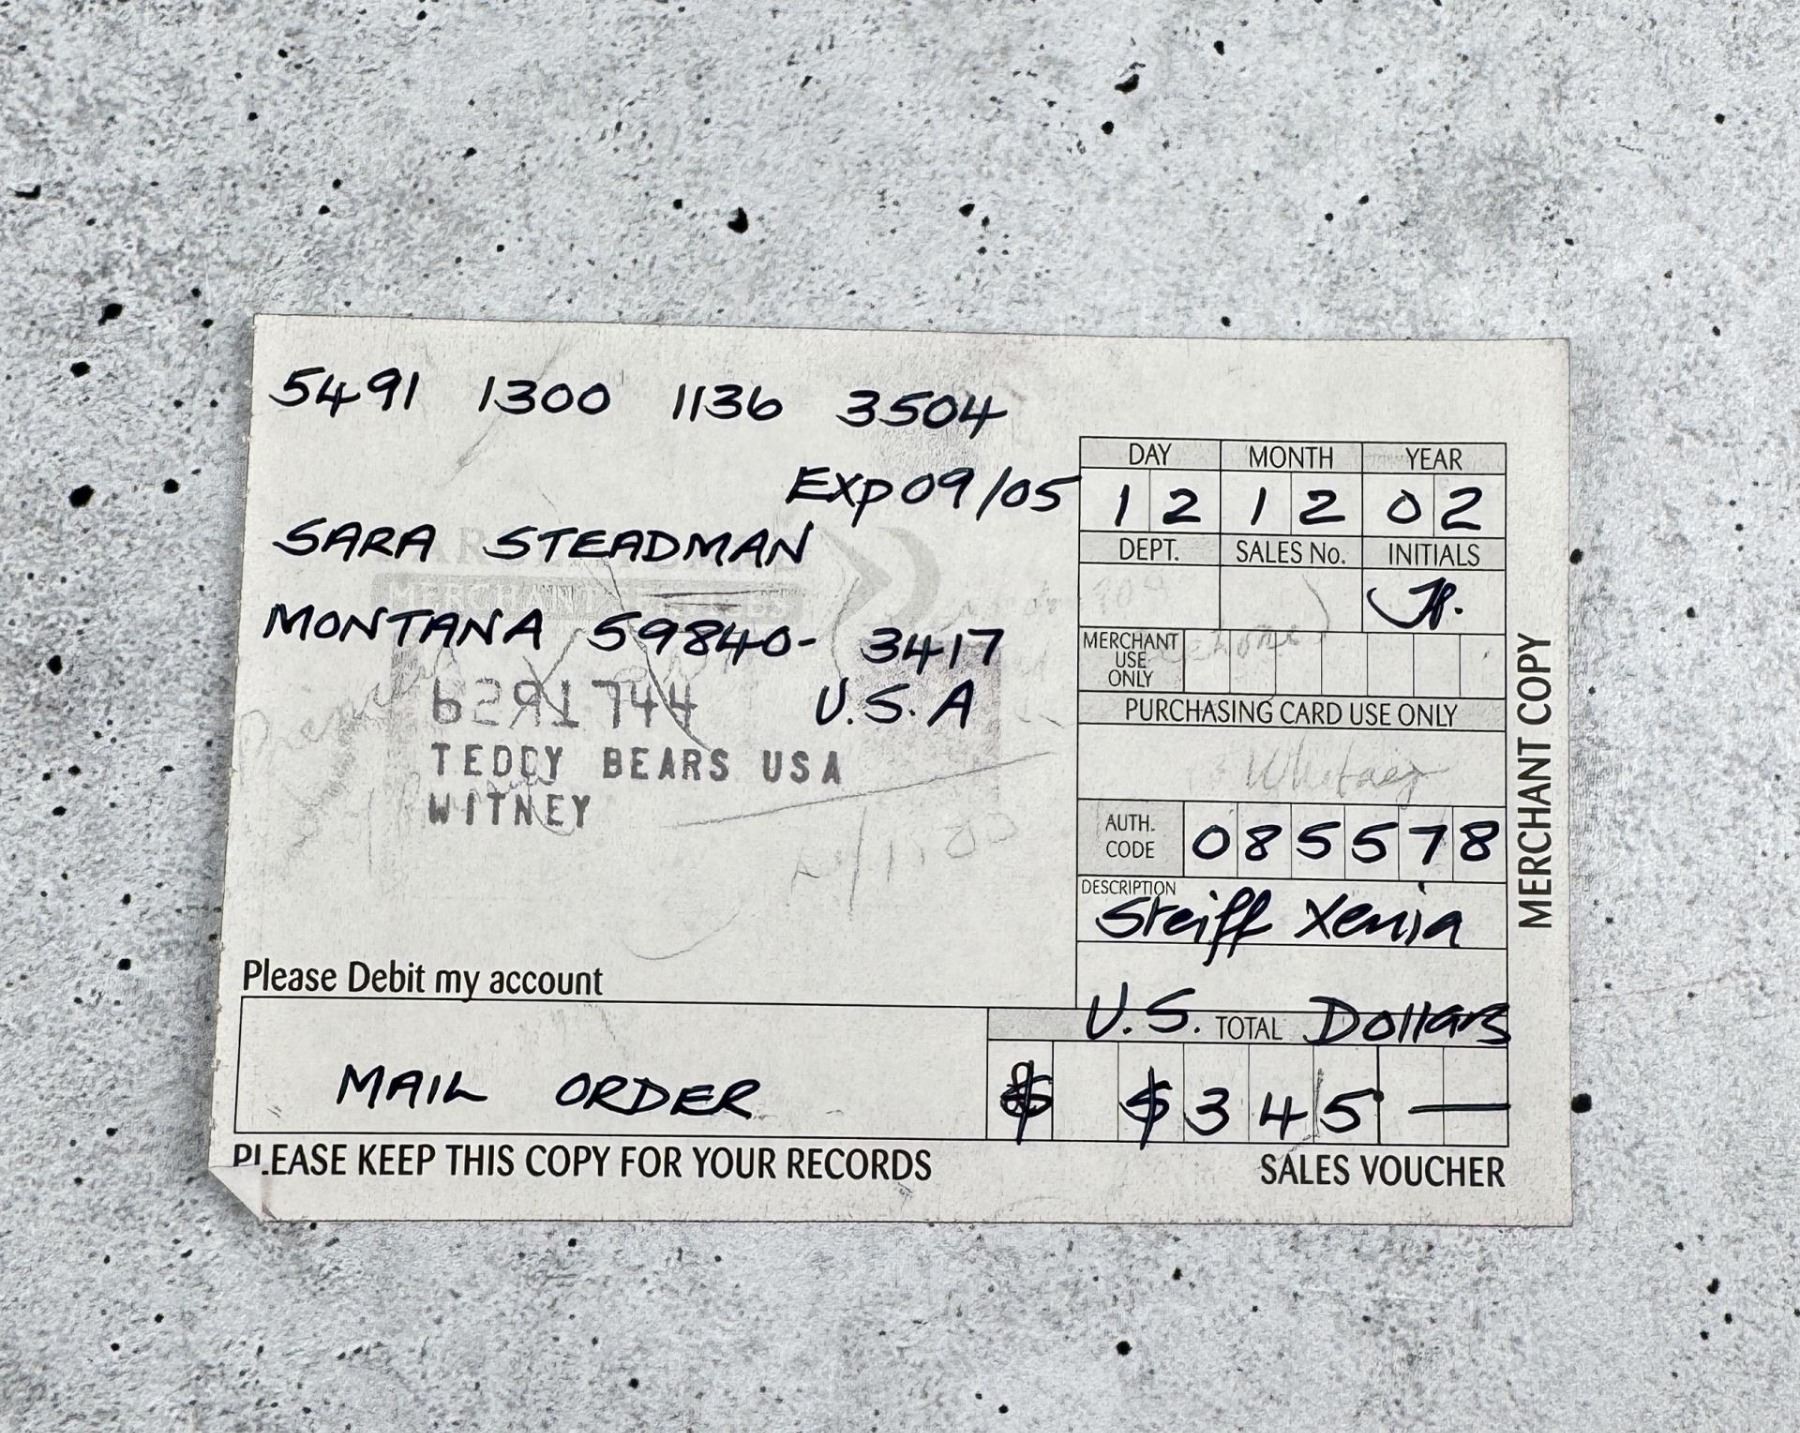 5491 1300 1136 3504
Exp 09/05
SARA STEADMAN
MONTANA 59840-3417
U.S.A
TEDDY BEARS USA
WITNEY
DAY MONTH YEAR
12 12 02
DEPT. SALES No. INITIALS
MERCHANT
USE
ONLY
PURCHASING CARD USE ONLY
Whitney
AUTH.
CODE
085578
DESCRIPTION
Steiff Xenia
Please Debit my account
U.S. TOTAL Dollars
MAIL ORDER
$ 345 —
PLEASE KEEP THIS COPY FOR YOUR RECORDS
SALES VOUCHER
MERCHANT COPY